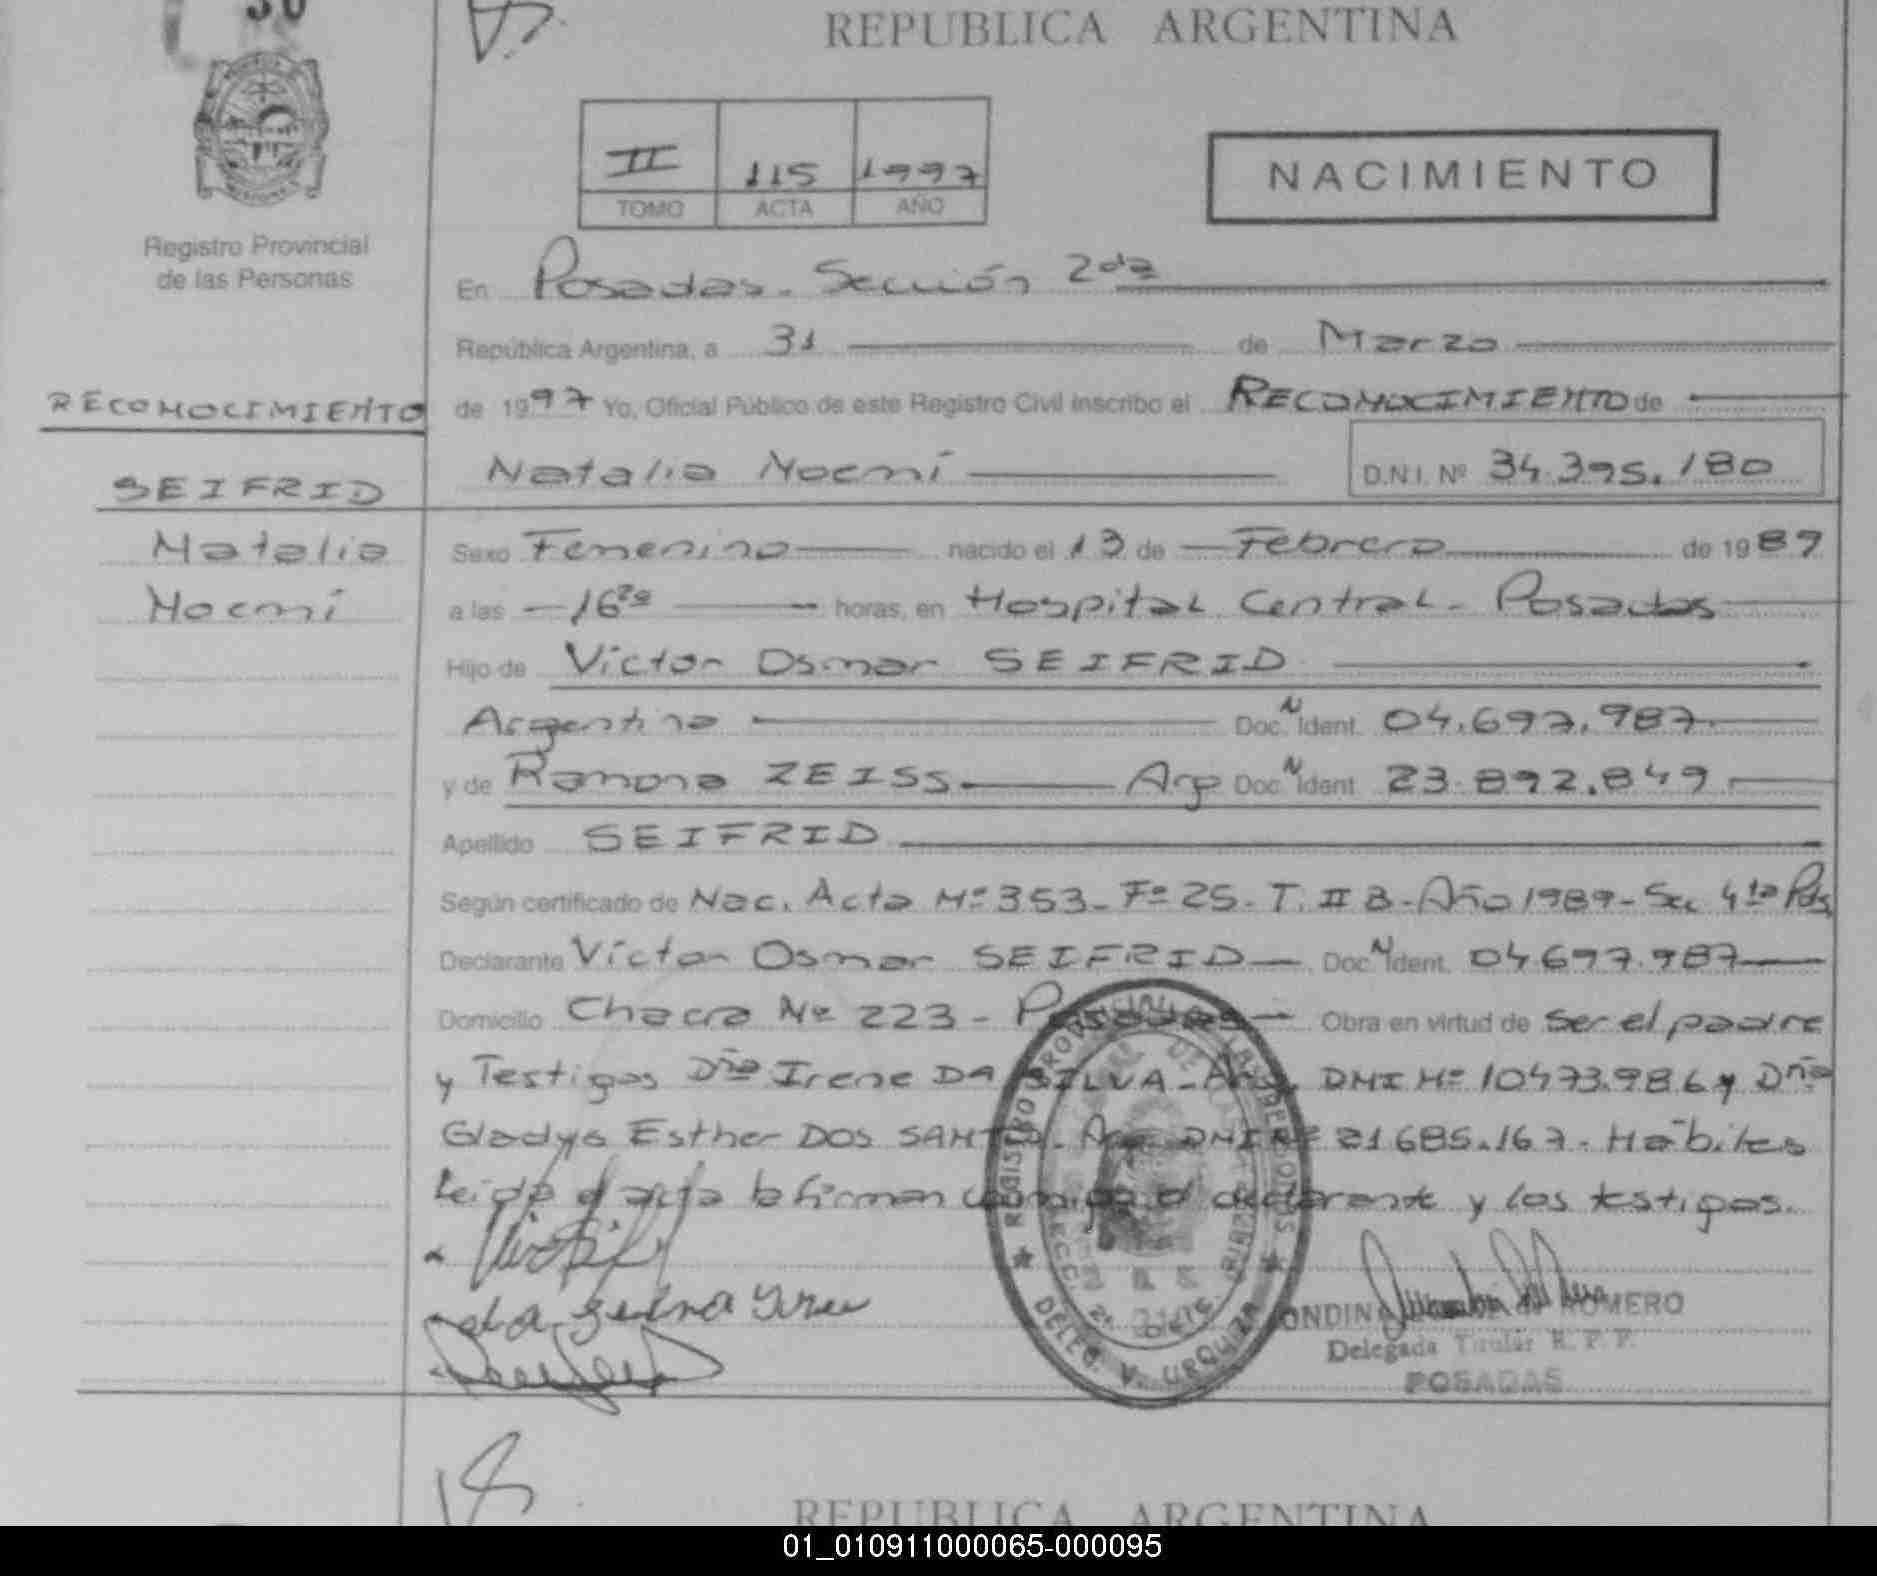 30
REPUBLICA ARGENTINA
II 115 1997
TOMO ACTA AÑO
NACIMIENTO
Registro Provincial
de las Personas
En Posadas - Sección 2da
República Argentina, a 31 de Marzo
RECONOCIMIENTO
de 1997 Yo, Oficial Público de este Registro Civil inscribo el RECONOCIMIENTO de
SEIFRID
Natalia Noemí D.N.I. Nº 34.395.180
Natalia
Sexo Femenino nacido el 13 de Febrero de 1989
Noemí
a las 16 horas, en Hospital Central - Posadas
Hijo de Víctor Osmar SEIFRID
Argentino Doc. N Ident. 04.697.987
y de Ramona ZEISS Arg Doc. N Ident. 23.892.849
Apellido SEIFRID
Según certificado de Nac. Acta Nº 353 - Fº 25 - T. II B - Año 1989 - Sec 4ta Pdas
Declarante Víctor Osmar SEIFRID Doc. N Ident. 04.697.987
Domicilio Chacra Nº 223 - Posadas Obra en virtud de ser el padre
y Testigos Dña Irene DA SILVA - Arg. DNI Nº 10.473.986 y Dña
Gladys Esther DOS SANTOS - Arg DNI Nº 21.685.167 - Hábiles
Leída el acta la firman conmigo el declarante y los testigos.
REGISTRO PROVINCIAL DE LAS PERSONAS
DELEG. V. URQUIZA
ROMERO
Delegada Titular R. P. P.
POSADAS
REPUBLICA ARGENTINA
01_010911000065-000095